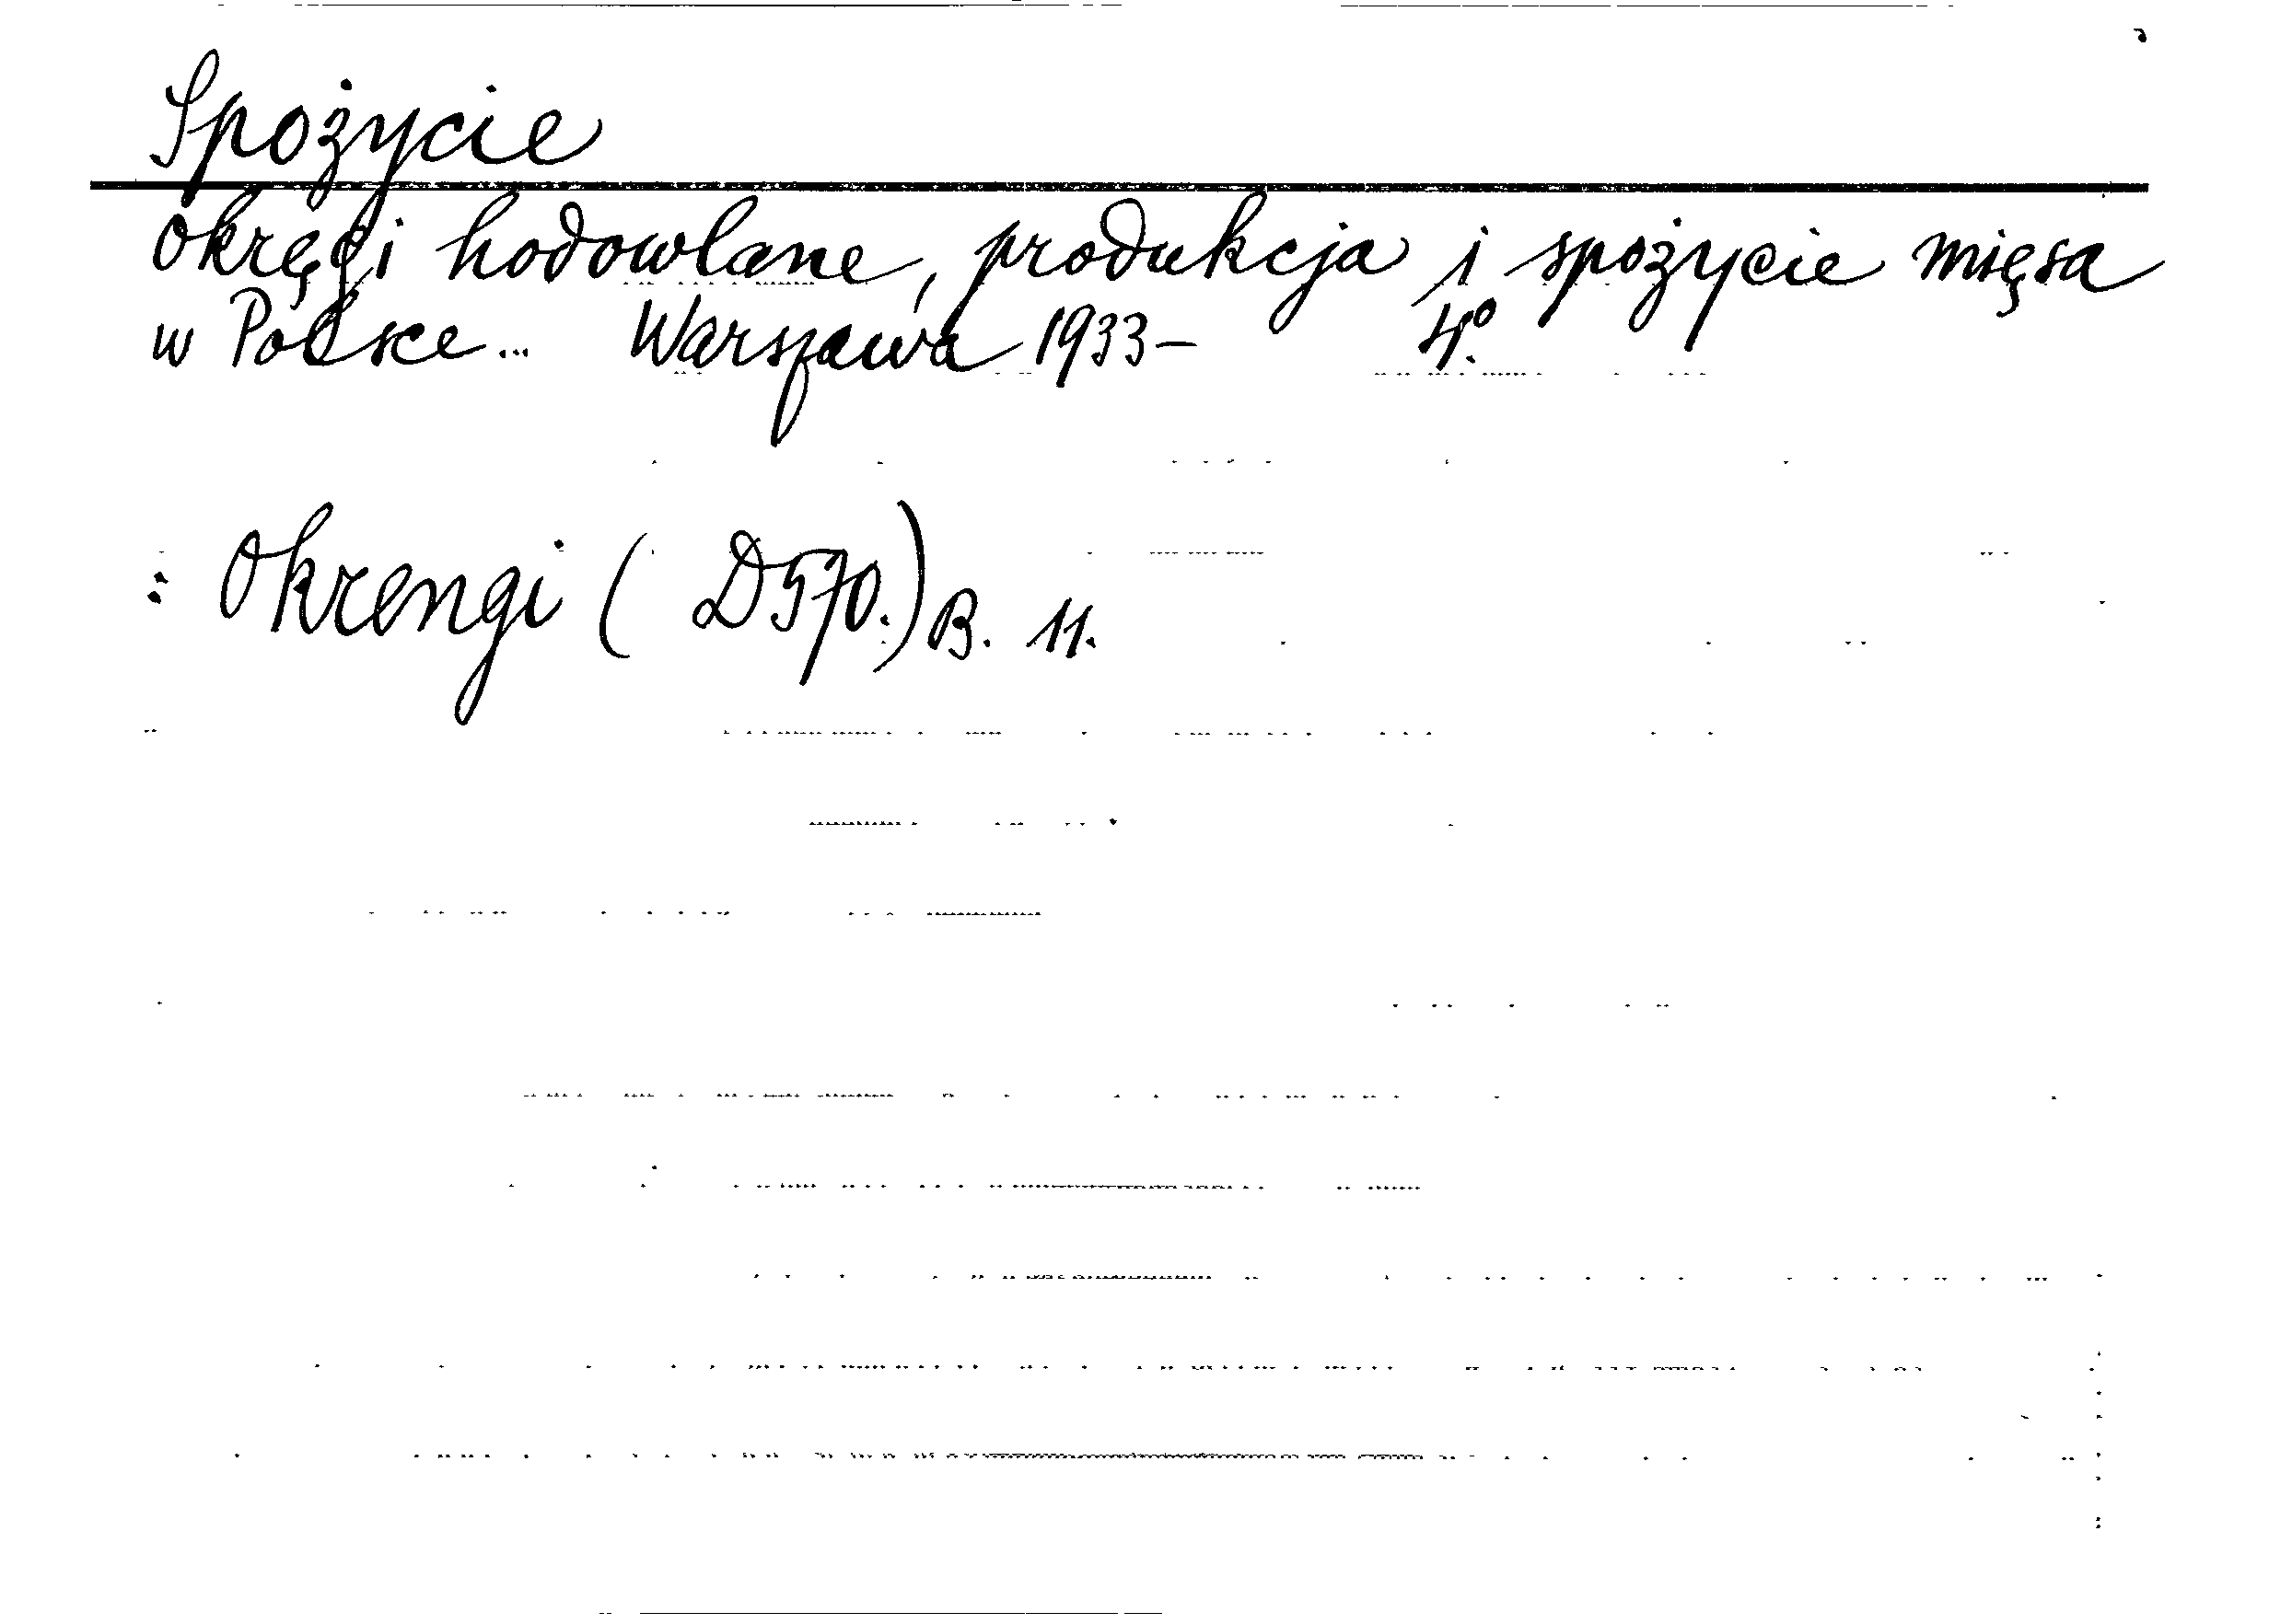 Spożycie
Okręgi hodowlane, produkcja i spożycie mięsa
w Polsce... Warszawa 1933- 4º.
: Okrengi ( D570.) B. 11.